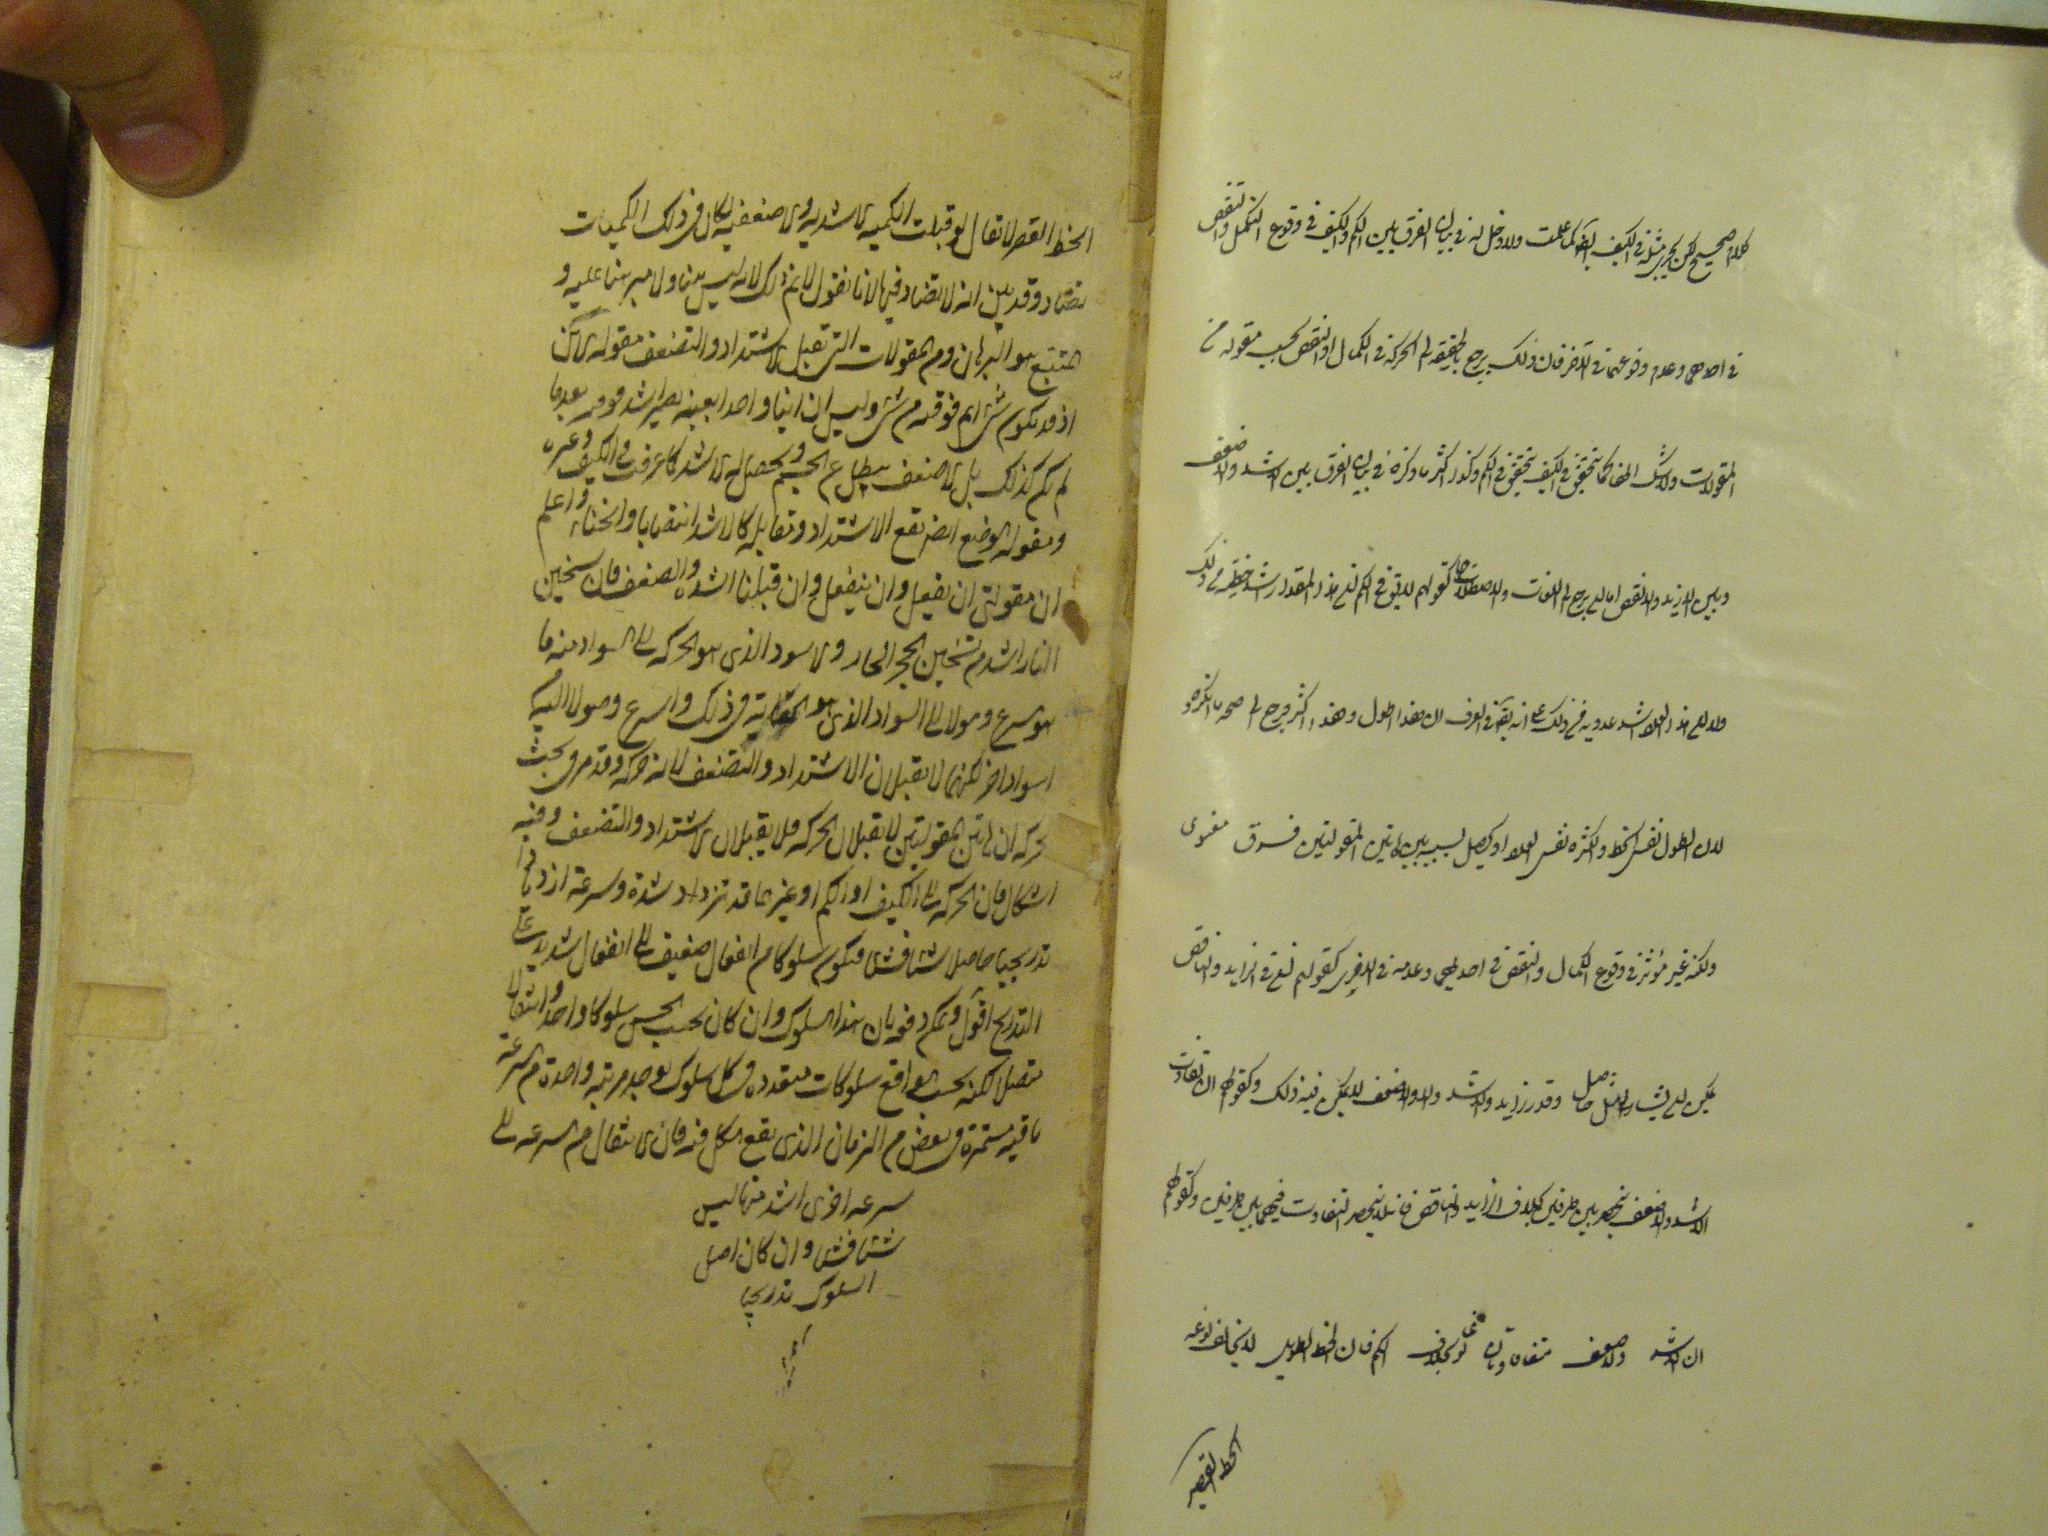 كلام صحيح لكن يجري مثله في الكيف ايضا كما علمت ولا دخل له في بيان الفرق بين الكم والكيف في وقوع التكمل والتنقص
في احدهما وعدم وقوعهما في الآخر فان ذلك يرجع بالحقيقة الى الحركة في الكمال او النقص بحسب مقولة من
المقولات ولا شك انها كما تتحقق في الكيف تتحقق في الكم وكذا اكثر ما ذكره في بيان الفرق بين الاشد والاضعف
وبين الازيد والانقص اما ان يرجع الى اللغات والاصطلاحات كقولهم لا يق في الكم ان هذا المقدار اشد خطية من ذلك
ولا ان هذا العدد اشد عددية من ذلك على انه يق في العرف ان هذا اطول وهذا اكثر ويرجع الى صحة ما انكروه
لان الطول نفس الخط والكثرة نفس العدد او يحصل بسببه بين هاتين المقولتين فرق معنوى
ولكنه غير مؤثر في وقوع الكمال والنقص في احديهما وعدمه في الاخرى كقولهم التفاوت في الزايد والناقص
يمكن ان يشار الى مثل حاصل وقدر زايد والاشد والاضعف لا يمكن فيه ذلك وكقولهم ان تفاوت
الاشد والاضعف ينحصر بين طرفين بخلاف الزايد والناقص فانه لا ينحصر التفاوت فيهما بين طرفين وكقولهم
ان الاشد والاضعف متفاوتان نوعا بخلاف الكم فان الخط الطويل لا يخالف نوعه
الخط القصير
الخط القصير لا يقال لو قبلت الكمية الاشدية والاضعفية لكان في ذلك الكميات
تضاد وقد بين انه لا تضاد فيها لانا نقول لا نم ذلك لانه ليس بينا ولا مبرهنا عليه و
المتبع هو البرهان ومن المقولات التى تقبل الاشتداد والتضعف مقولة الاين
اذ قد يكون شئ اتم فوقية من شئ وليس ان اينا واحدا بعينه يصير اشد فوقية بعد ما
لم يكن كذلك بل الاضعف يبطل عن الجسم ويحصل له الاشد كما عرفت في الكيف وغيره
ومقولة الوضع ايضا يقع الاشتداد وتقابله كالاشد انتصابا وانحناء واعلم
ان مقولتى ان يفعل وان ينفعل وان قبلتا الاشد والاضعف فان تسخين
النار اشد من تسخين الحجر الحار والاسود الذى هو الحركة الى السواد منه ما
هو اسرع وصولا الى السواد الذى هو الغاية في ذلك واسرع وصولا اليه
اسوداد اخر لكنهما لا يقبلان الاشتداد والتضعف لانه حركة وقد مر في بحث
الحركة ان هاتين المقولتين لا يقبلان الحركة فلا يقبلان الاشتداد والتضعف وفيه
اشكال فان الحركة الى الكيف او الكم او غيرهما قد تزداد شدة وسرعة ازديادا
تدريجيا حاصلا شيئا فشيئا فيكون سلوكا من انفعال ضعيف الى انفعال شديد على
التدريج اقول ويمكن دفعه بان هذا السلوك وان كان بحسب الحس سلوكا واحدا وانتقالا
متصلا لكنه بحسب الواقع سلوكات متعددة في كل سلوك يوجد مرتبة واحدة من السرعة
باقية مستمرة في بعض من الزمان الذى يقع الكل فيه فان الانتقال من السرعة الى
سرعة اخرى اشد منها ليس
شيئا فشيئا وان كان اصل
السلوك تدريجيا